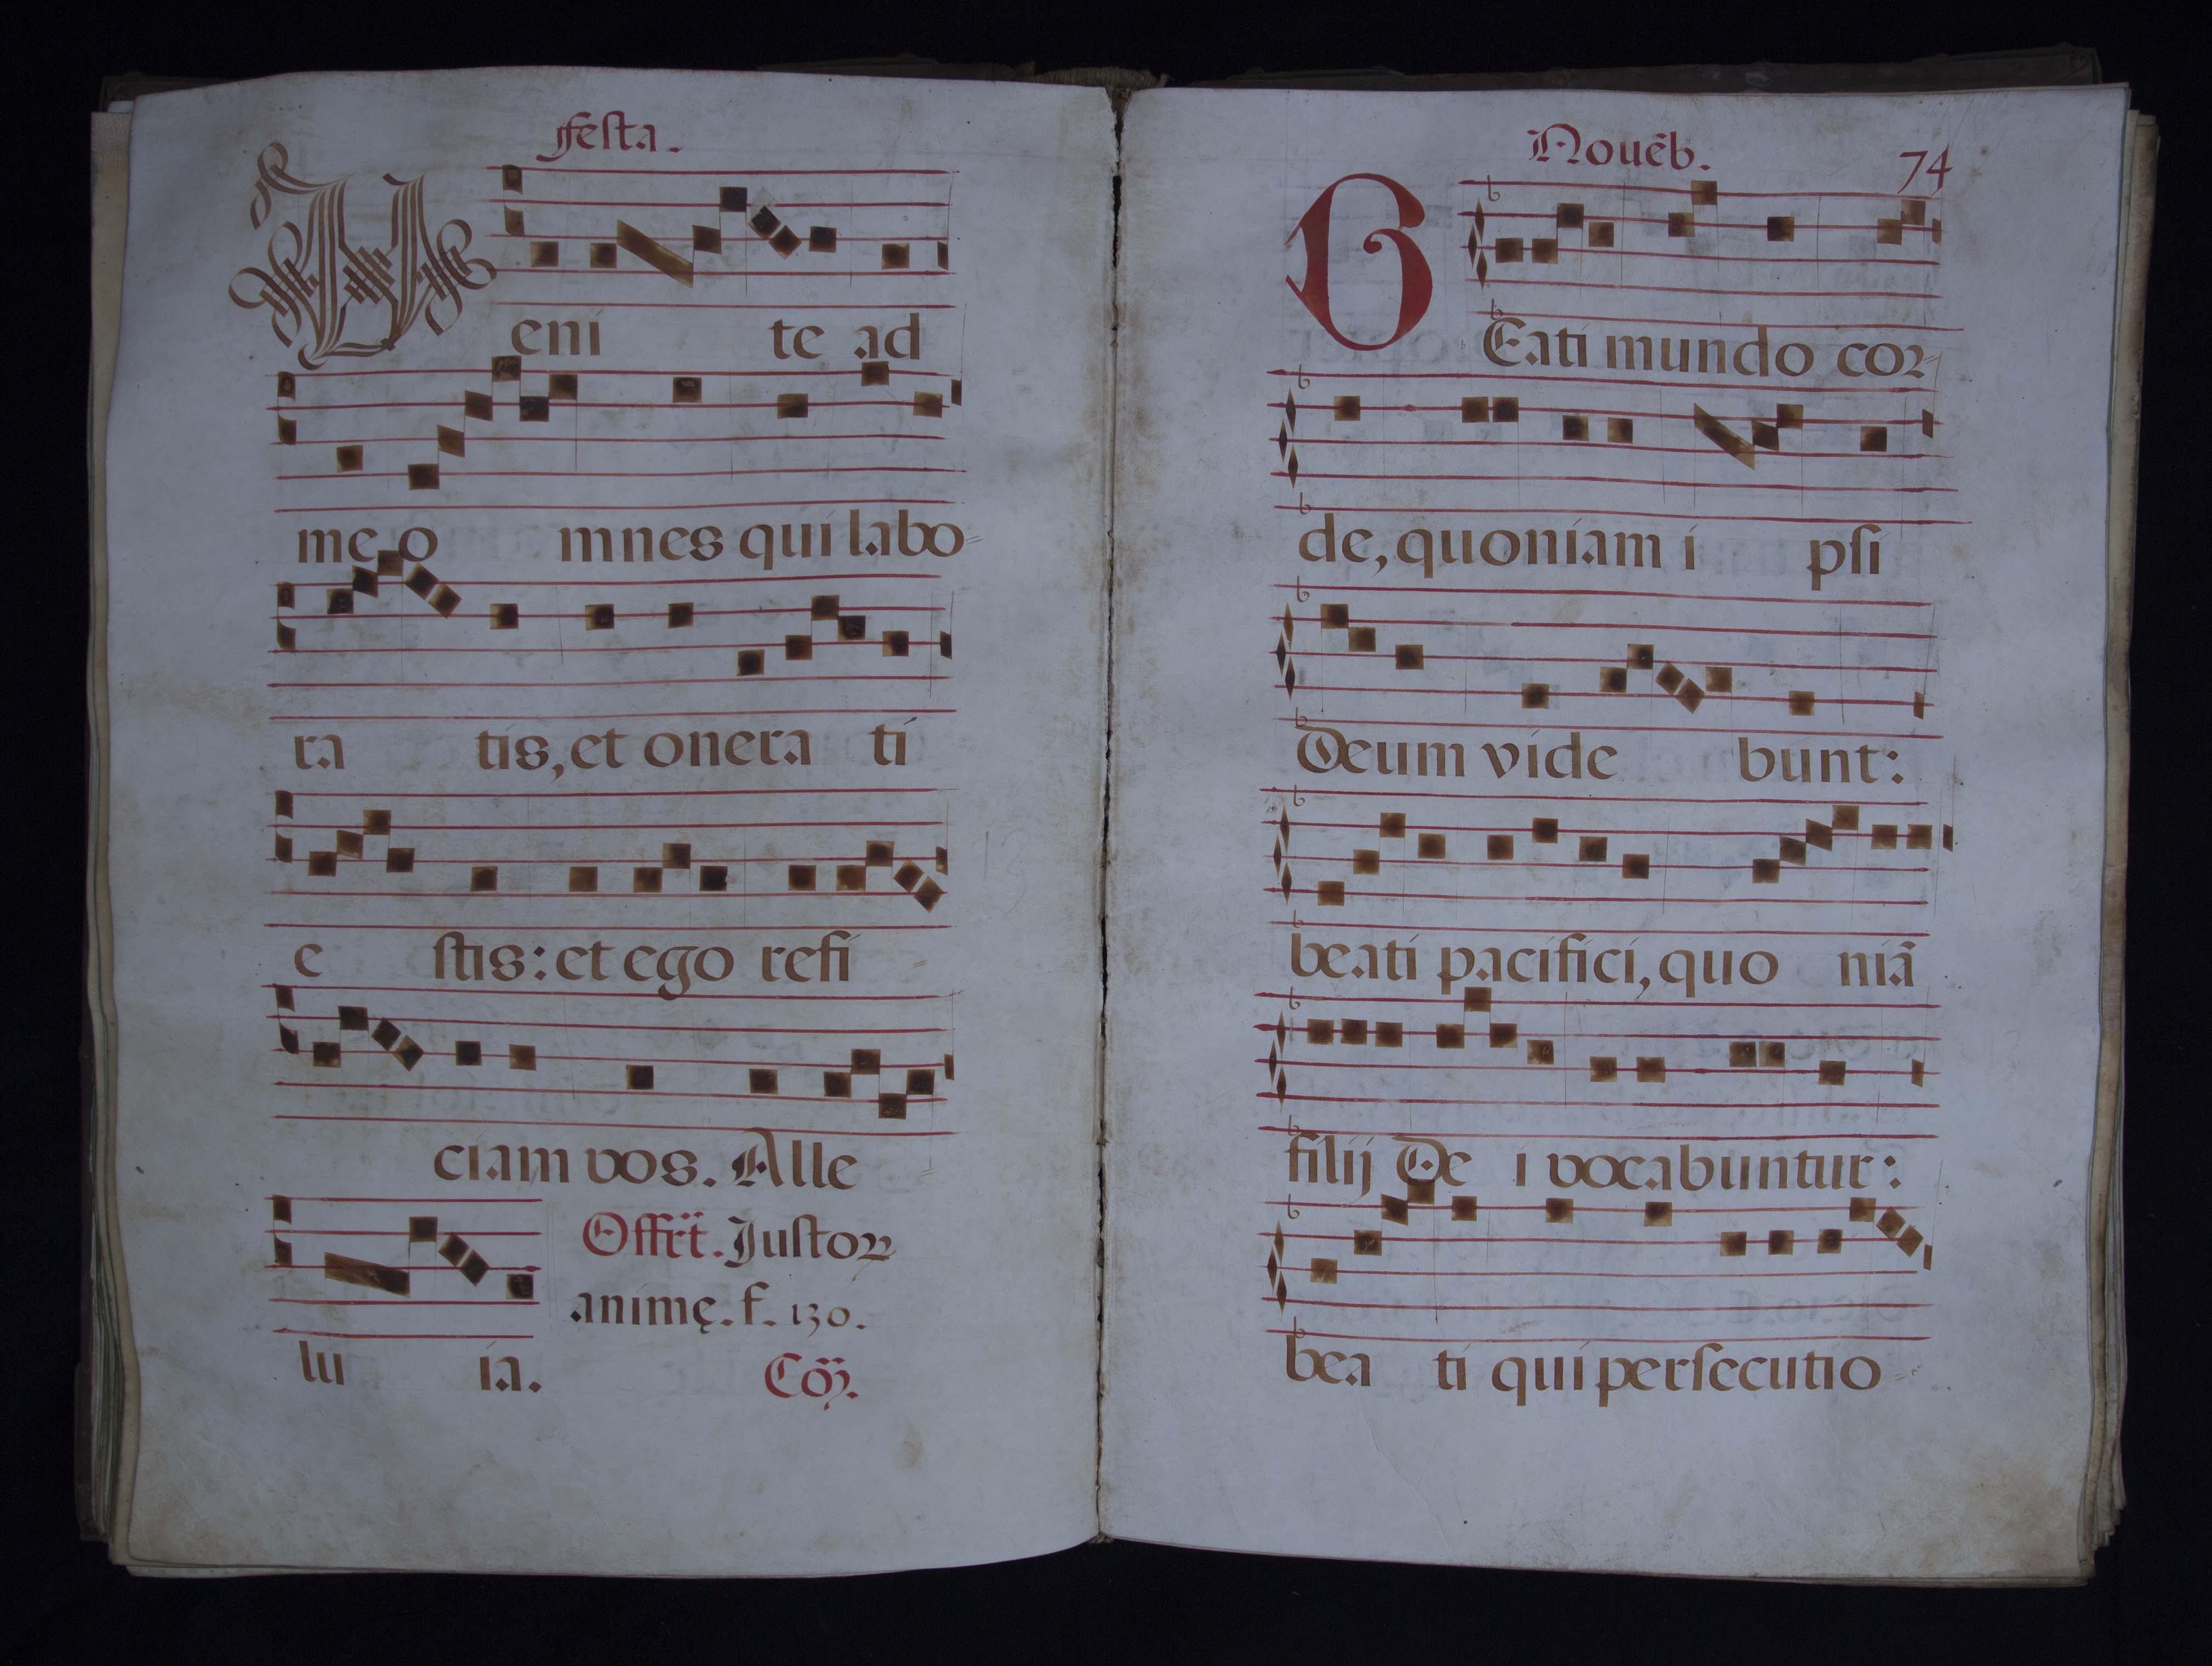 Festa.
Veni te ad
me o mnes qui labo=
ra tis, et onera ti
e stis: et ego refi =
ciam vos. Alle =
Offrt. Justoꝝ
animę. f. 130.
lu ia. Cõ.
Nouẽb. 74
BEati mundo cor=
de, quoniam i psi
Deum vide bunt:
beati pacifici, quo niã
filij De i vocabuntur:
bea ti qui persecutio =